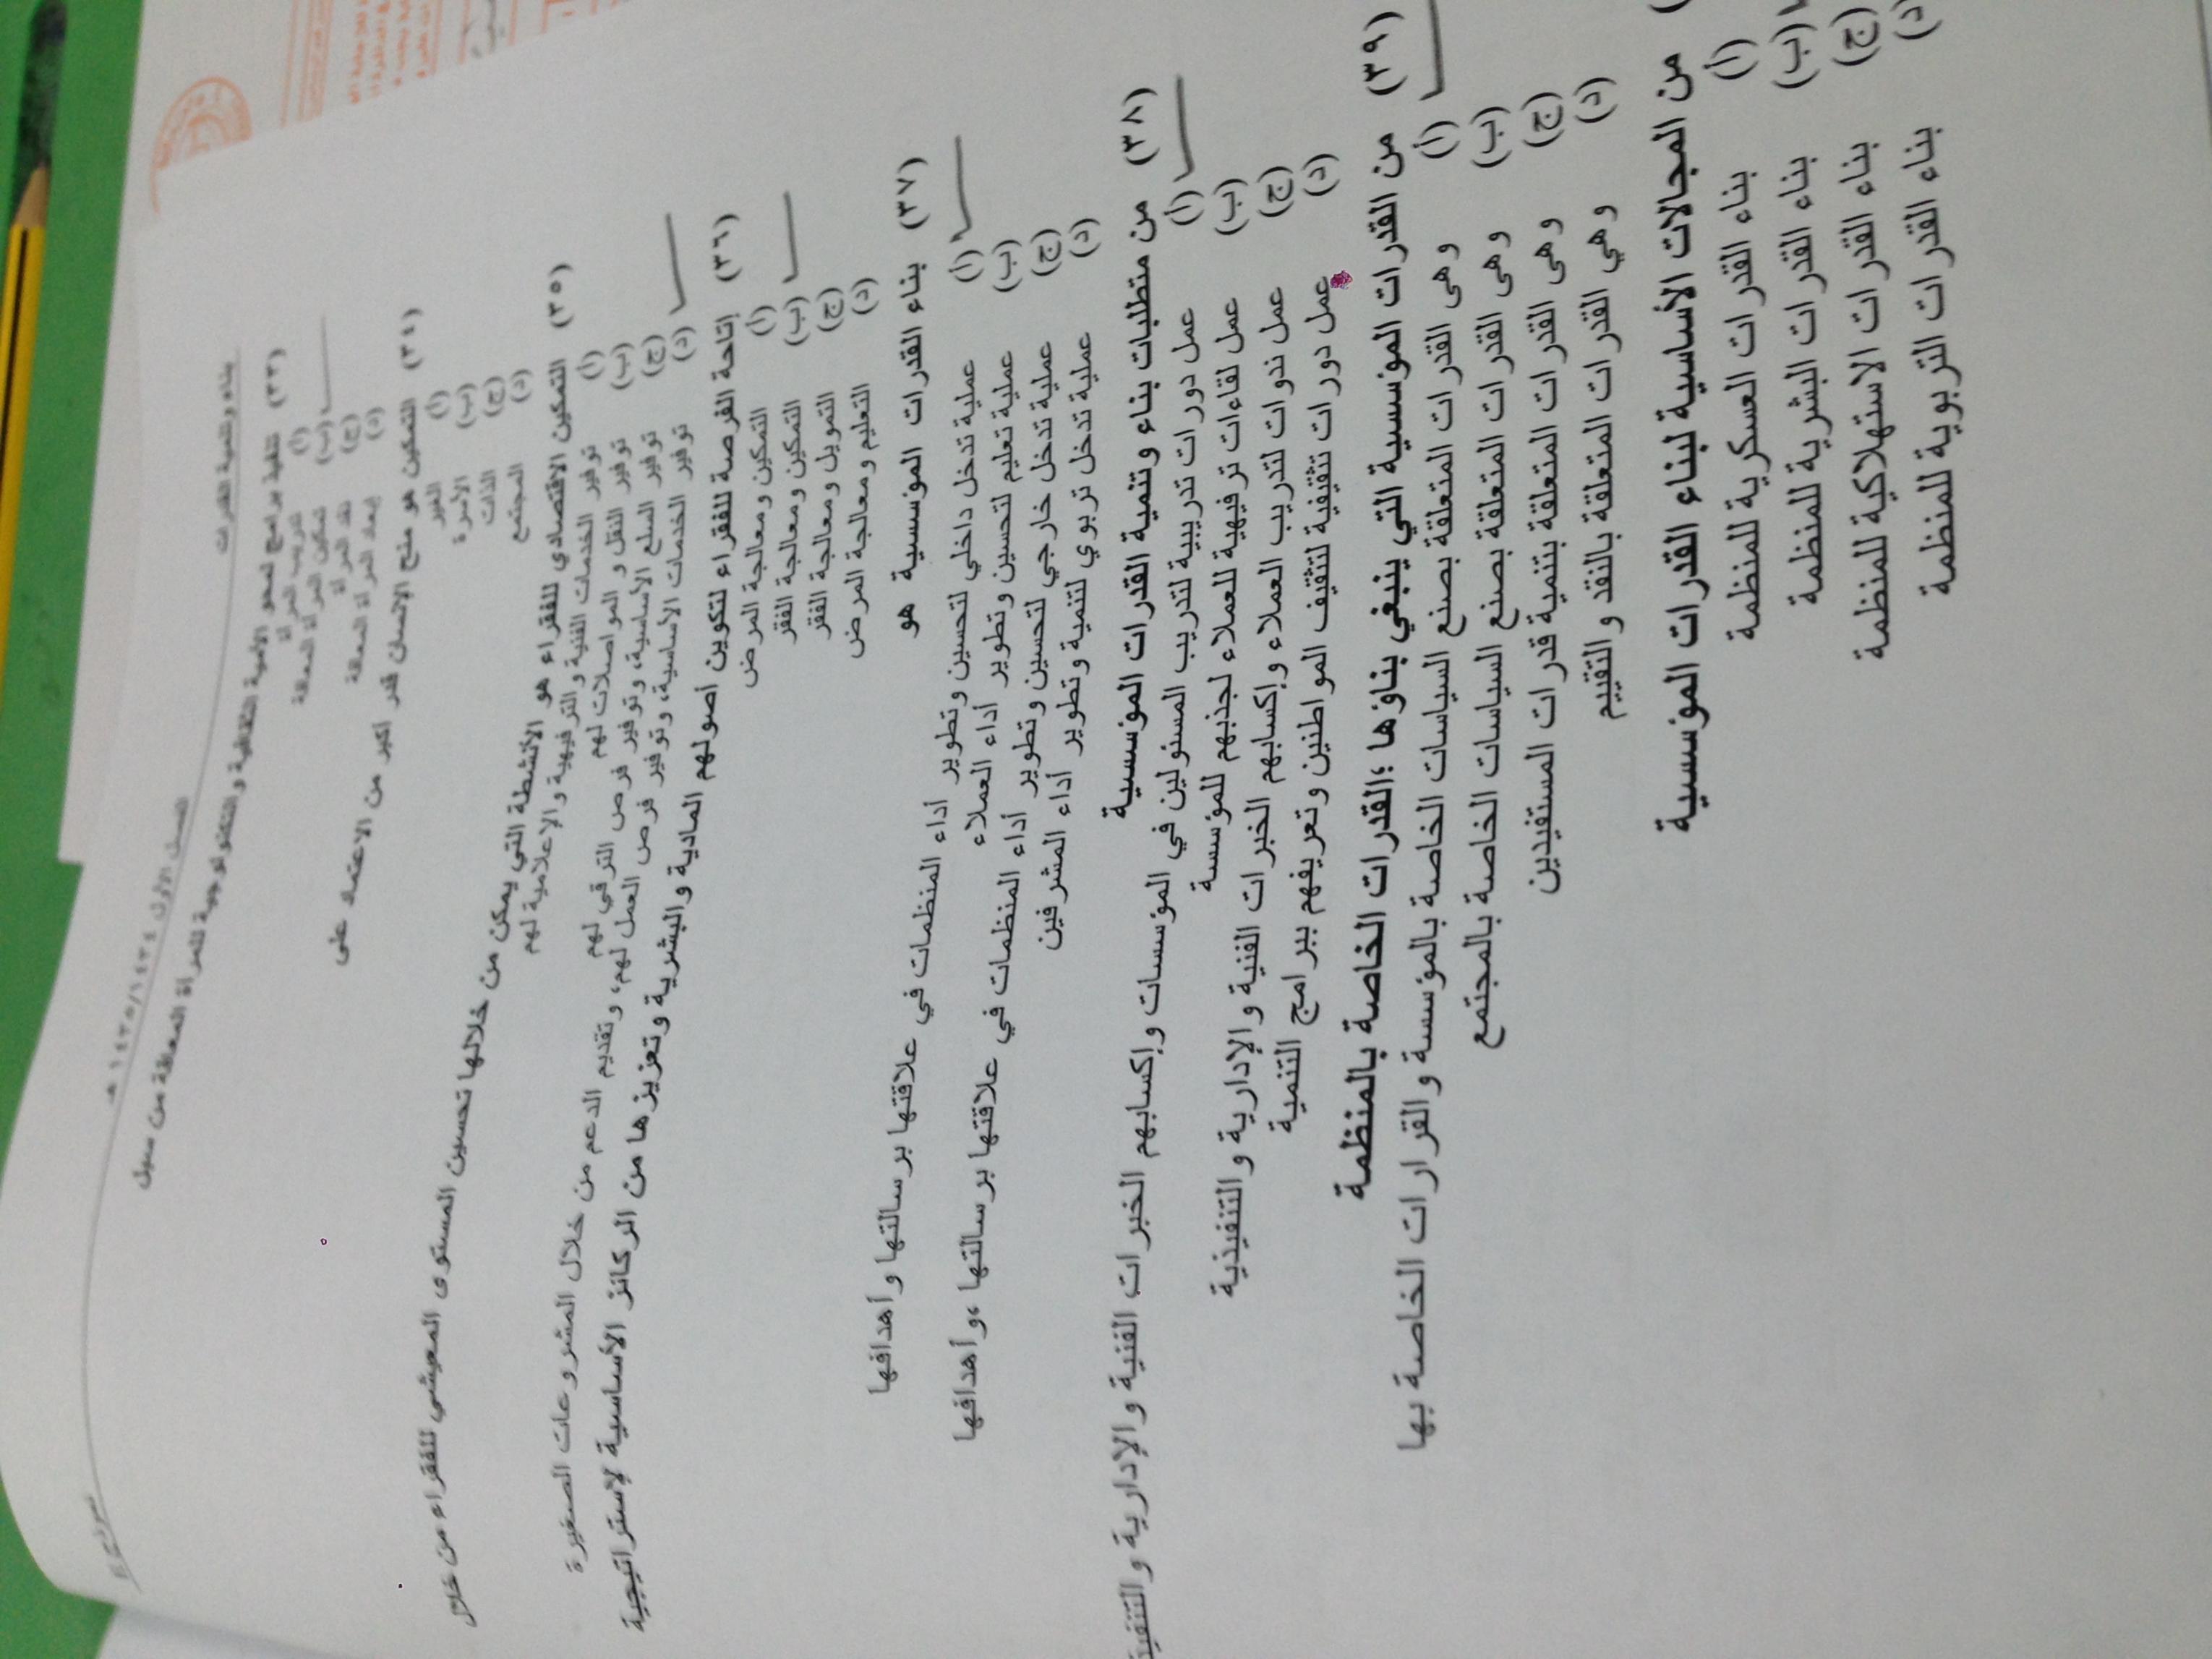 بناء وتنمية القدرات
الفصل الأول ١٤٣٤/١٤٣٥ هـ
(٣٣) تنفيذ برامج لمحو الأمية الثقافية والتكنولوجية للمرأة المعاقة من سبيل
(أ) تدريب المرأة
(ب) تمكين المرأة المعاقة
(ج) نقد المرأة
(د) إبعاد المرأة المعاقة
(٣٤) التمكين هو منح الإنسان قدر أكبر من الاعتماد على
(أ) الغير
(ب) الأسرة
(ج) الذات
(د) المجتمع
(٣٥) التمكين الاقتصادي للفقراء هو الأنشطة التي يمكن من خلالها تحسين المستوى المعيشي للفقراء من خلال
(أ) توفير الخدمات الفنية والترفيهية والإعلامية لهم
(ب) توفير النقل والمواصلات لهم
(ج) توفير السلع الأساسية، وتوفير فرص الترقي لهم
(د) توفير الخدمات الأساسية، وتوفير فرص العمل لهم، وتقديم الدعم من خلال المشروعات الصغيرة
(٣٦) إتاحة الفرصة للفقراء لتكوين أصولهم المادية والبشرية وتعزيزها من الركائز الأساسية لإستراتيجية
(أ) التمكين ومعالجة المرض
(ب) التمكين ومعالجة الفقر
(ج) التمويل ومعالجة الفقر
(د) التعليم ومعالجة المرض
(٣٧) بناء القدرات المؤسسية هو
(أ) عملية تدخل داخلي لتحسين وتطوير أداء المنظمات في علاقتها برسالتها وأهدافها
(ب) عملية تعليم لتحسين وتطوير أداء العملاء
(ج) عملية تدخل خارجي لتحسين وتطوير أداء المنظمات في علاقتها برسالتها ،وأهدافها
(د) عملية تدخل تربوي لتنمية وتطوير أداء المشرفين
(٣٨) من متطلبات بناء وتنمية القدرات المؤسسية
(أ) عمل دورات تدريبية لتدريب المسئولين في المؤسسات وإكسابهم الخبرات الفنية والإدارية والتنفيذية
(ب) عمل لقاءات ترفيهية للعملاء لجذبهم للمؤسسة
(ج) عمل ندوات لتدريب العملاء وإكسابهم الخبرات الفنية والإدارية والتنفيذية
(د) عمل دورات تثقيفية لتثقيف المواطنين وتعريفهم ببرامج التنمية
(٣٩) من القدرات المؤسسية التي ينبغي بناؤها ؛القدرات الخاصة بالمنظمة
(أ) وهى القدرات المتعلقة بصنع السياسات الخاصة بالمؤسسة والقرارات الخاصة بها
(ب) وهى القدرات المتعلقة بصنع السياسات الخاصة بالمجتمع
(ج) وهى القدرات المتعلقة بتنمية قدرات المستفيدين
(د) وهي القدرات المتعلقة بالنقد والتقييم
من المجالات الأساسية لبناء القدرات المؤسسية
(أ) بناء القدرات العسكرية للمنظمة
(ب) بناء القدرات البشرية للمنظمة
(ج) بناء القدرات الاستهلاكية للمنظمة
(د) بناء القدرات التربوية للمنظمة